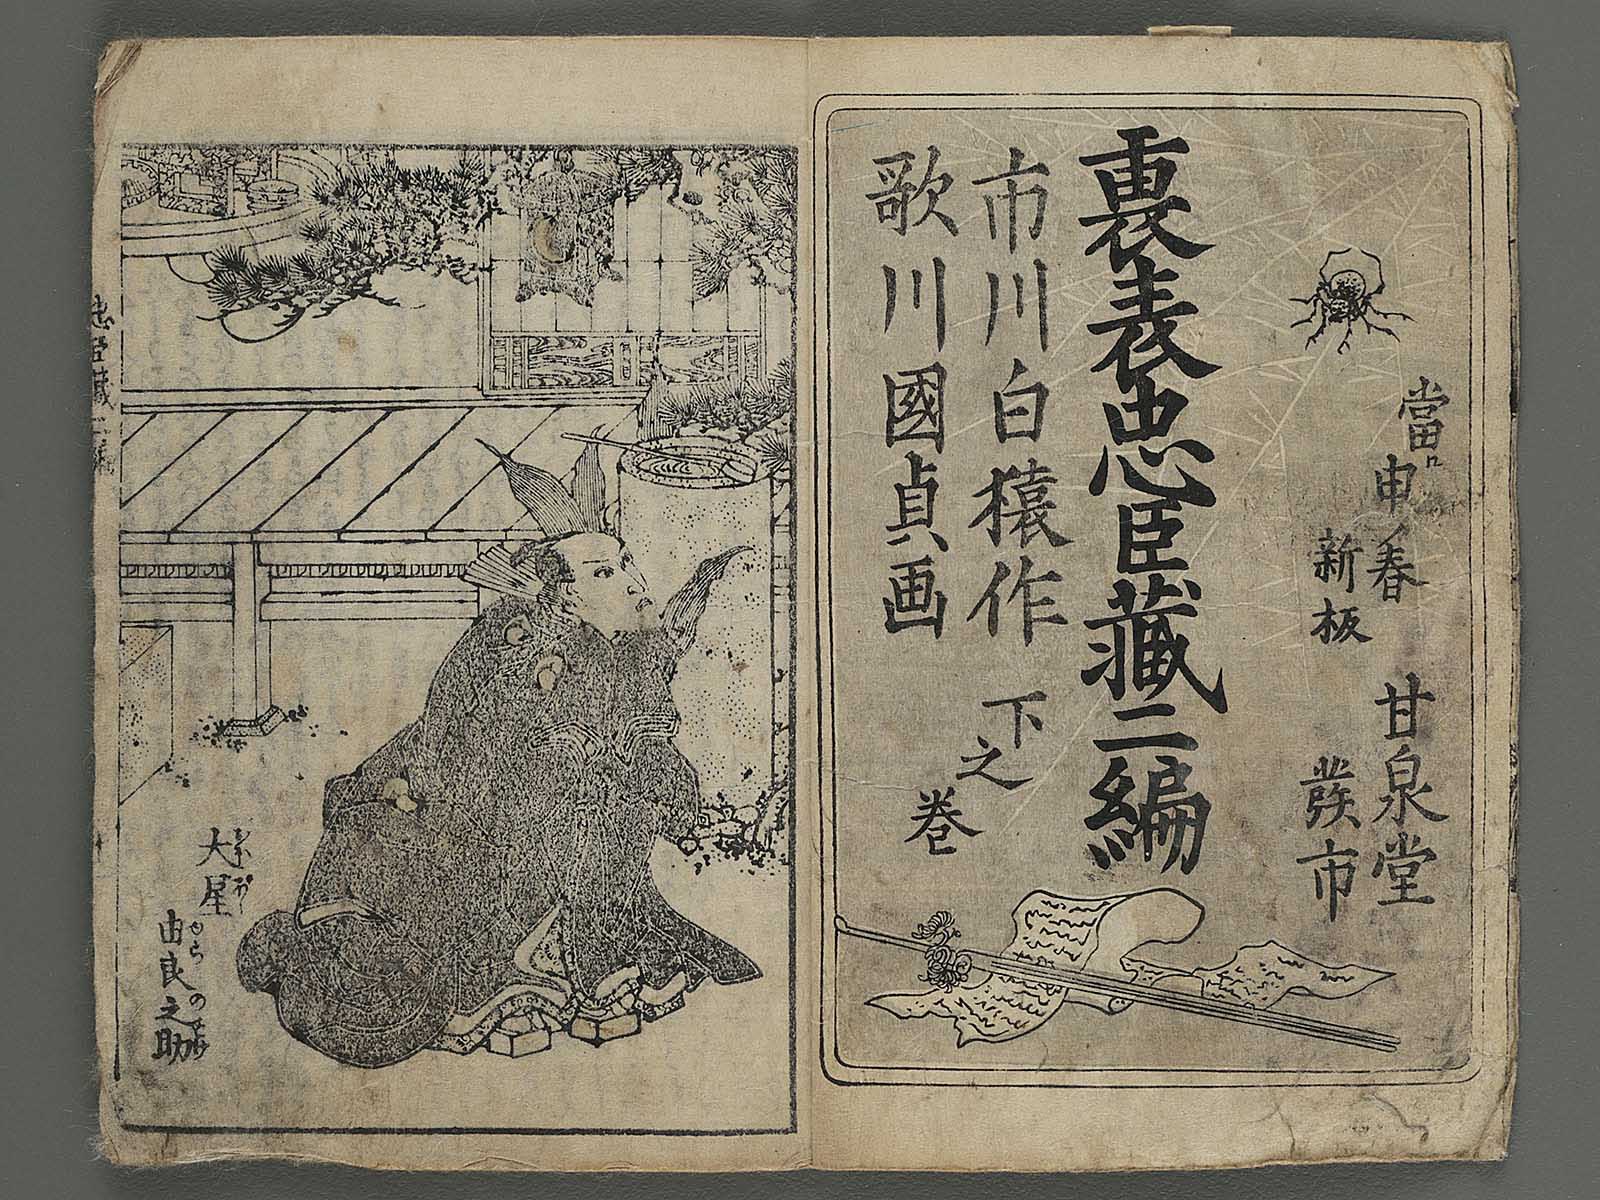 當ル
申ノ春
新板
甘泉堂
發市
裏表忠臣藏二編
市川白猿作
歌川國貞画
下之巻
忠臣藏二編
大星
おおぼし
由良之助
ゆらのすけ